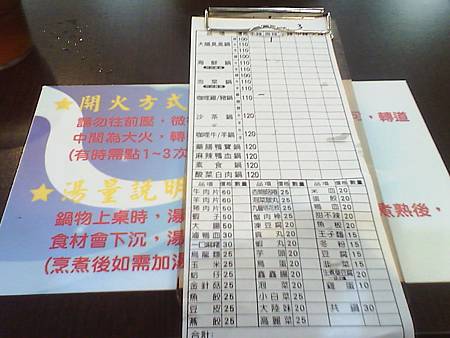 3
大腸臭臭鍋 100 110
海鮮鍋 100 110
泡菜鍋 100 110
咖哩雞/豬鍋 100 110
沙茶鍋 110 120
咖哩牛/羊鍋 110 120
藥膳鴨寶鍋 120
麻辣鴨血鍋 120
素食鍋 120
酸菜白肉鍋 120
品項 價格 數量 品項 價格 數量 品項 價格 數量
牛肉片 50
羊肉片 50
豬肉片 50
蝦子 50
大腸 50
鴨血 30
烏龍麵 25
玉米 25
蛤仔 25
金針菇 25
魚餃 25
豆皮 25
燕餃 25
蟹肉棒 25
凍豆腐 20
貢丸 20
蝦丸 20
芋頭 20
鑫鑫腸 20
泡菜 20
小白菜 20
大陸妹 20
高麗菜 20
米血 20
甜不辣 20
魚板 20
王子麵 15
冬粉 15
豆腐 15
韭菜 15
雞蛋 10
共鍋 30
合計:
★開火方式
請勿往前壓,微
中間為大火,轉
(有時需點1~3次
,轉道
★湯量說明
鍋物上桌時,湯
食材會下沉,湯
(烹煮後如需加湯
煮熟後,